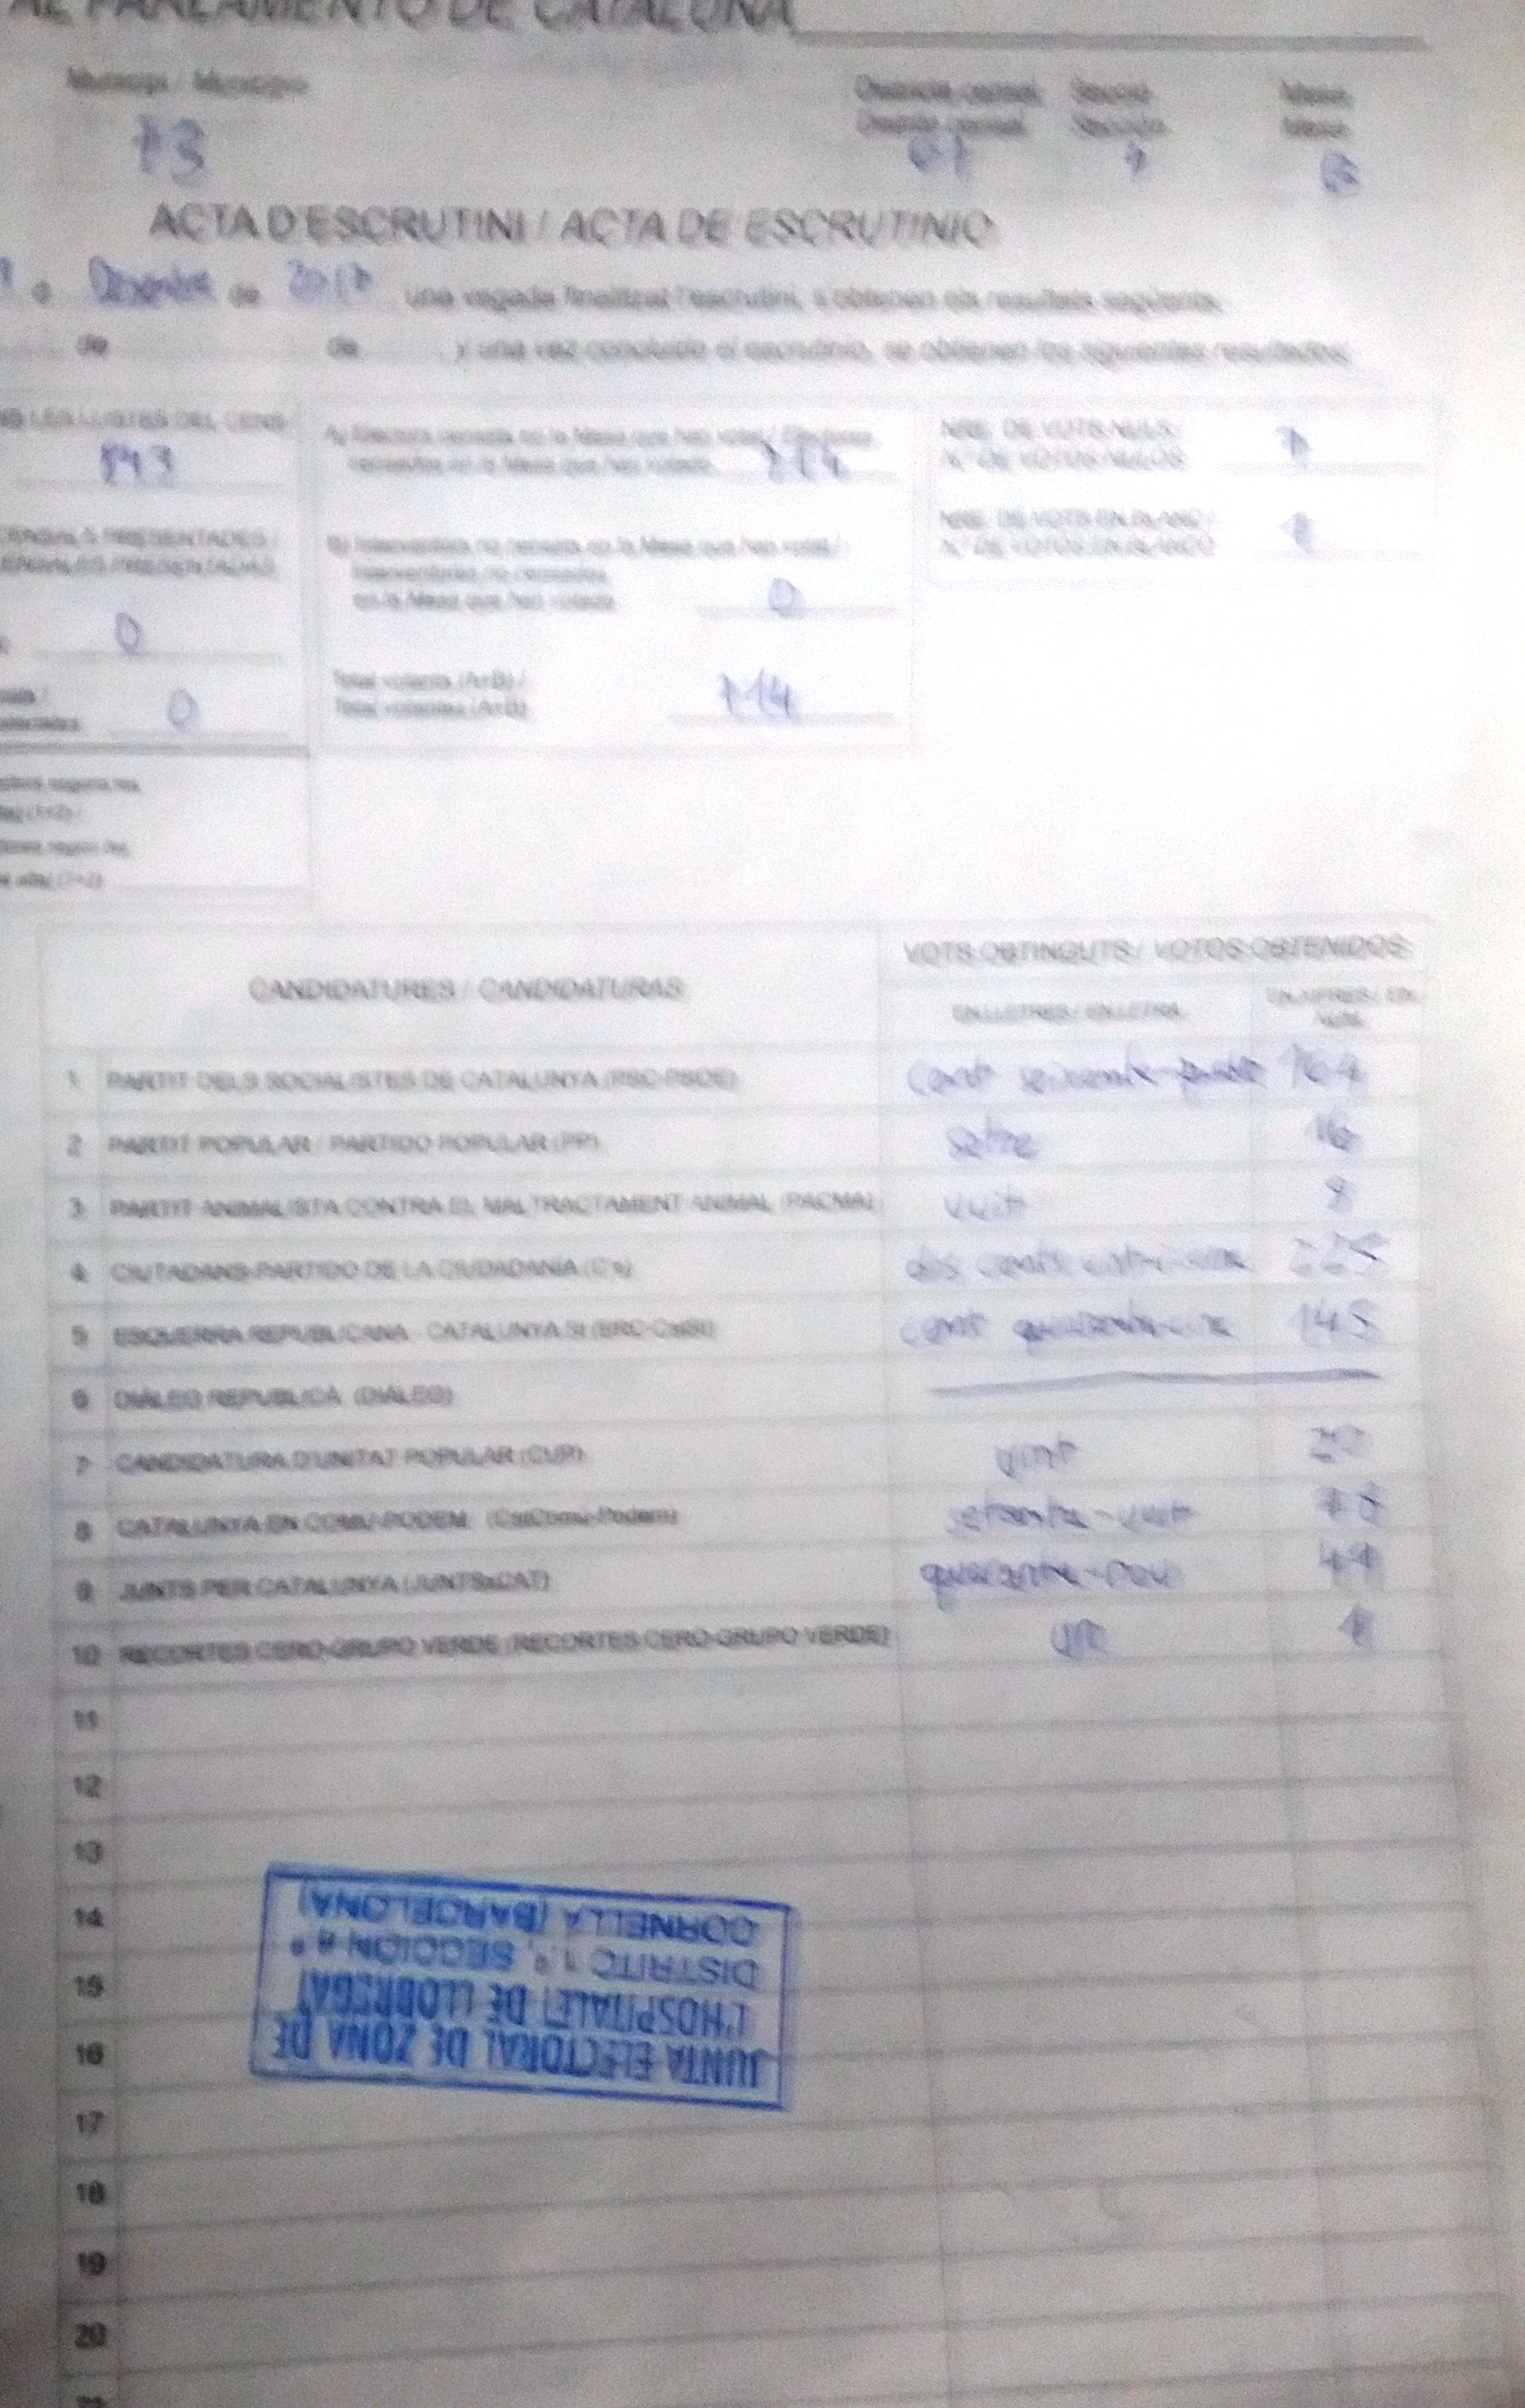 AL PARLAMENTO DE CATALUÑA
Municipi / Municipio
73
Districte censal Secció Mesa
Distrito censal Sección Mesa
01
ACTA D'ESCRUTINI / ACTA DE ESCRUTINIO
a Desembre de 2017 una vegada finalitzat l'escrutini, s'obtenen els resultats següents:
de de y una vez concluido el escrutinio, se obtienen los siguientes resultados:
LES LLISTES DEL CENS
A) Electors censats en la Mesa que han votat / Electores
censados en la Mesa que han votado
NRE. DE VOTS NULS /
N.º DE VOTOS NULOS
NRE. DE VOTS EN BLANC /
N.º DE VOTOS EN BLANCO
CENSALS PRESENTADES /
CENSALES PRESENTADAS
0
B) Interventors no censats en la Mesa que han votat /
Interventores no censados
en la Mesa que han votado
0
0
Total votants (A+B) /
Total votantes (A+B)
714
CANDIDATURES / CANDIDATURAS
VOTS OBTINGUTS / VOTOS OBTENIDOS
EN LLETRES / EN LETRA
EN XIFRES / EN
NÚM.
1 PARTIT DELS SOCIALISTES DE CATALUNYA (PSC-PSOE) cent seixanta-quatre 164
2 PARTIT POPULAR / PARTIDO POPULAR (PP) setze 16
3 PARTIT ANIMALISTA CONTRA EL MALTRACTAMENT ANIMAL (PACMA) vuit 8
4 CIUTADANS-PARTIDO DE LA CIUDADANÍA (C's) dos cents 225
5 ESQUERRA REPUBLICANA - CATALUNYA SÍ (ERC-CatSí) cent quaranta-cinc 145
6 DIÀLEG REPUBLICÀ (DIÀLEG)
7 CANDIDATURA D'UNITAT POPULAR (CUP) vint 20
8 CATALUNYA EN COMÚ-PODEM (CatComú-Podem) setanta-vuit 78
9 JUNTS PER CATALUNYA (JUNTSxCAT) quaranta-nou 49
10 RECORTES CERO-GRUPO VERDE (RECORTES CERO-GRUPO VERDE) un 1
11
12
13
14
15
16
17
18
19
20
JUNTA ELECTORAL DE ZONA DE
L'HOSPITALET DE LLOBREGAT
DISTRITO 1.º, SECCION
CORNELLA (BARCELONA)